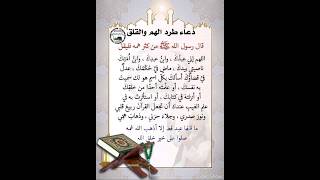 دعاء طرد الهم والقلق
قال رسول الله ﷺ من كثر همه فليقل
اللهم إني عبدك ، وابن عبدك ، وابن أمتك
ناصيتي بيدك ، ماض في حكمك ، عدل
في قضاؤك أسألك بكل اسم هو لك سميت
به نفسك ، أو علمته أحدا من خلقك
أو أنزلته في كتابك ، أو استأثرت به في
علم الغيب عندك أن تجعل القرآن ربيع قلبي
ونور صدري ، وجلاء حزني ، وذهاب همي
ما قالها عبد قط إلا أذهب الله همه
صلوا على خير خلق الله